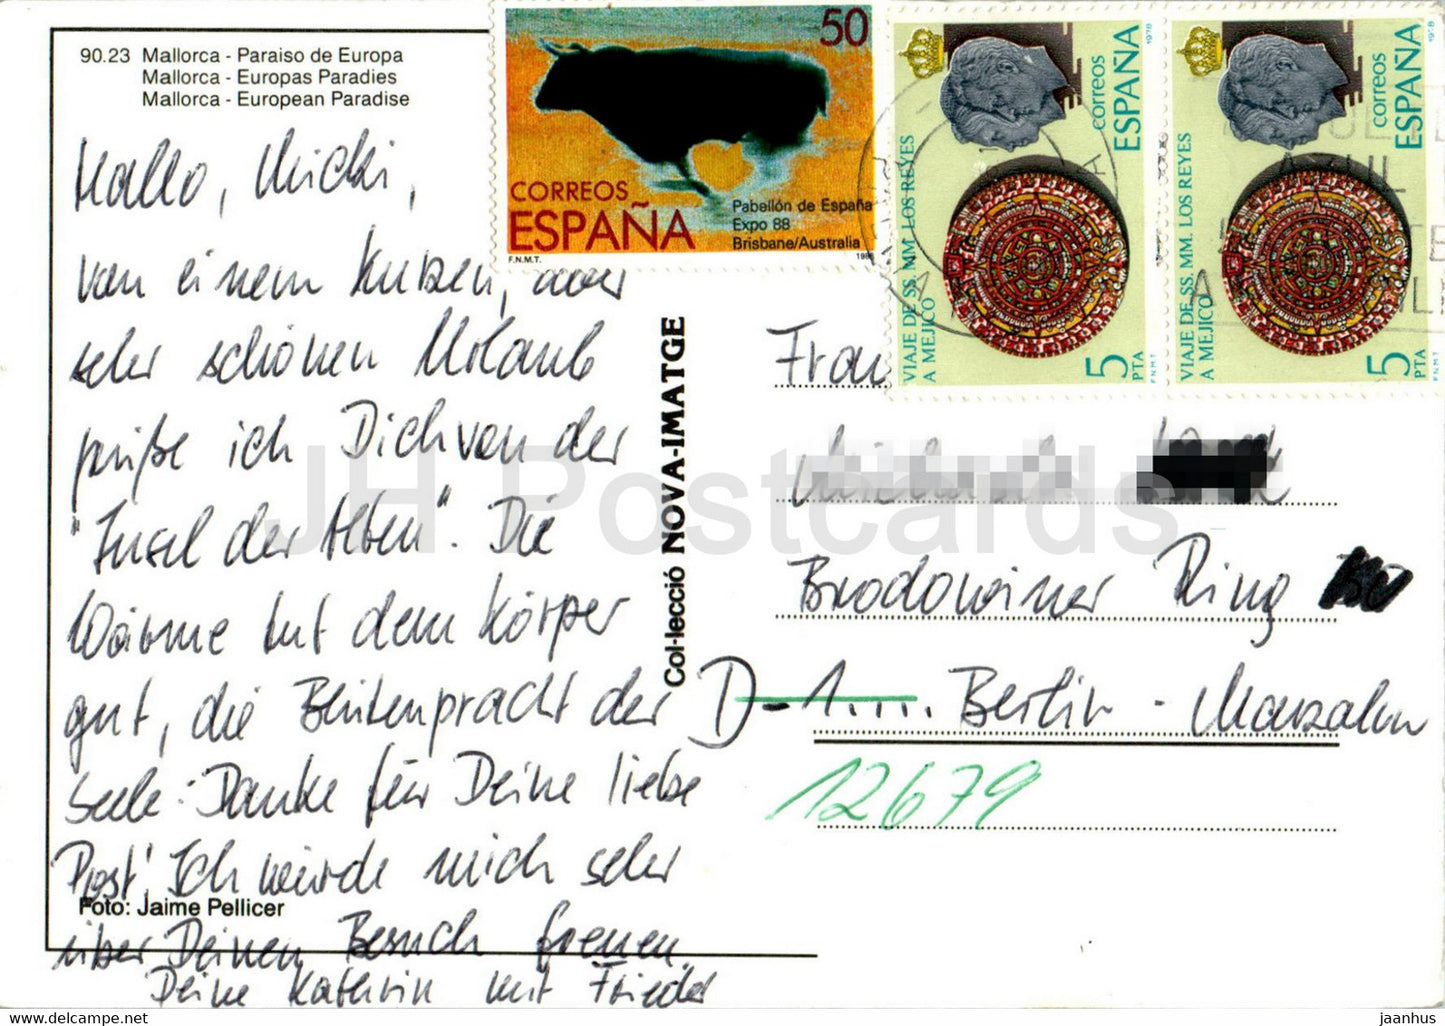 90.23 Mallorca - Paraiso de Europa
Mallorca - Europas Paradies
Mallorca - European Paradise
Hallo, Micki,
von einem kurzen, aber
sehr schönen Urlaub
grüße ich Dich von der
"Insel der Alten". Die
Wärme tut dem Körper
gut, die Blütenpracht der
Seele. Danke für Deine liebe
Post! Ich würde mich sehr
über Deinen Besuch freuen.
Deine Kathrin mit Frieder
Foto: Jaime Pellicer
Col·lecció NOVA-IMATGE
50
CORREOS
ESPAÑA
Pabellón de España
Expo 88
Brisbane/Australia
F.N.M.T. 1988
VIAJE DE SS MM. LOS REYES
A MEJICO
correos
ESPAÑA
1978
5 PTA
F.N.M.T
VIAJE DE SS MM. LOS REYES
A MEJICO
correos
ESPAÑA
1978
5 PTA
F.N.M.T
Frau
Brodowiner Ring
D-1..... Berlin - Marzahn
12679
JH Postcards
www.delcampe.net
jaanhus